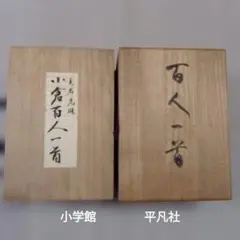 小倉百人一首
百人一首
小学館
平凡社